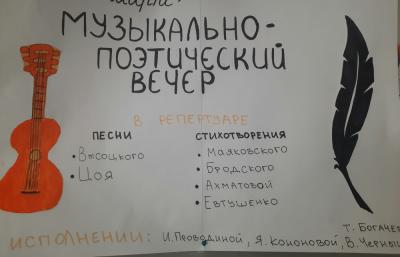 МУЗЫКАЛЬНО-
ПОЭТИЧЕСКИЙ
ВЕЧЕР
В РЕПЕРТУАРЕ
ПЕСНИ
• Высоцкого
• Цоя
СТИХОТВОРЕНИЯ
• Маяковского
• Бродского
• Ахматовой
• Евтушенко
Т. Богачев
ИСПОЛНЕНИИ: И. Проводиной, Я. Кононовой, В. Черныш